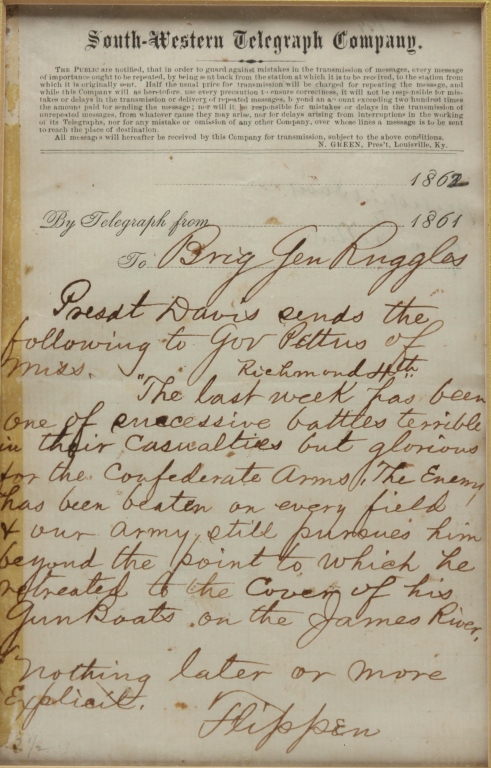 South-Western Telegraph Company.
THE PUBLIC are notified, that in order to guard against mistakes in the transmission of messages, every message
of importance ought to be repeated, by being sent back from the station at which it is to be received, to the station from
which it is originally sent. Half the usual price for transmission will be charged for repeating the message, and
while this Company will as heretofore use every precaution to ensure correctness, it will not be responsible for mis-
takes or delays in the transmission or delivery of repeated messages, beyond an amount exceeding two hundred times
the amount paid for sending the message; nor will it be responsible for mistakes or delays in the transmission of
unrepeated messages, from whatever cause they may arise, nor for delays arising from interruptions in the working
of its Telegraphs, nor for any mistake or omission of any other Company, over whose lines a message is to be sent
to reach the place of destination.
All messages will hereafter be received by this Company for transmission, subject to the above conditions.
N. GREEN, Pres't, Louisville, Ky.
1862
By Telegraph from 1861
To Brig Gen Ruggles
Presdt Davis sends the
following to Gov Pettus of
Miss. Richmond 4th
"The last week has been
one of successive battles terrible
in their casualties but glorious
for the Confederate Arms. The Enemy
has been beaten on every field
& our army still pursues him
beyond the point to which he
retreated to the Cover of his
Gun Boats on the James River.
Nothing later or more
Explicit.
Flippen